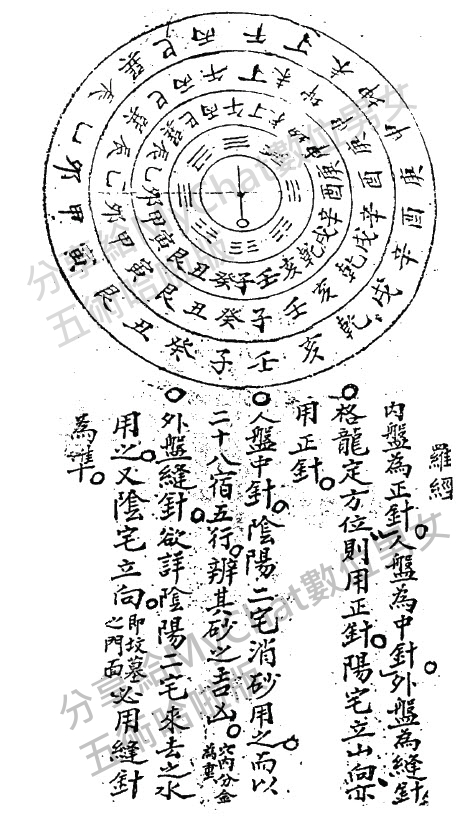 羅經
內盤為正針。人盤為中針。外盤為縫針
格龍定方位則用正針。陽宅立山向亦
用正針。
人盤中針。陰陽二宅消砂用之。而以
二十八宿五行。辨其砂之吉凶。穴內分金為重
外盤縫針。欲詳陰陽二宅來去之水
用之。又陰宅立向。即坟墓之門面必用縫針
為準。
子癸丑艮寅甲卯乙辰巽巳丙午丁未坤申庚酉辛戌乾亥壬
子癸丑艮寅甲卯乙辰巽巳丙午丁未坤申庚酉辛戌乾亥壬
子癸丑艮寅甲卯乙辰巽巳丙午丁未坤申庚酉辛戌乾亥壬
分享給MyChat數位男女
五術哈啦版
分享給MyChat數位男女
五術哈啦版